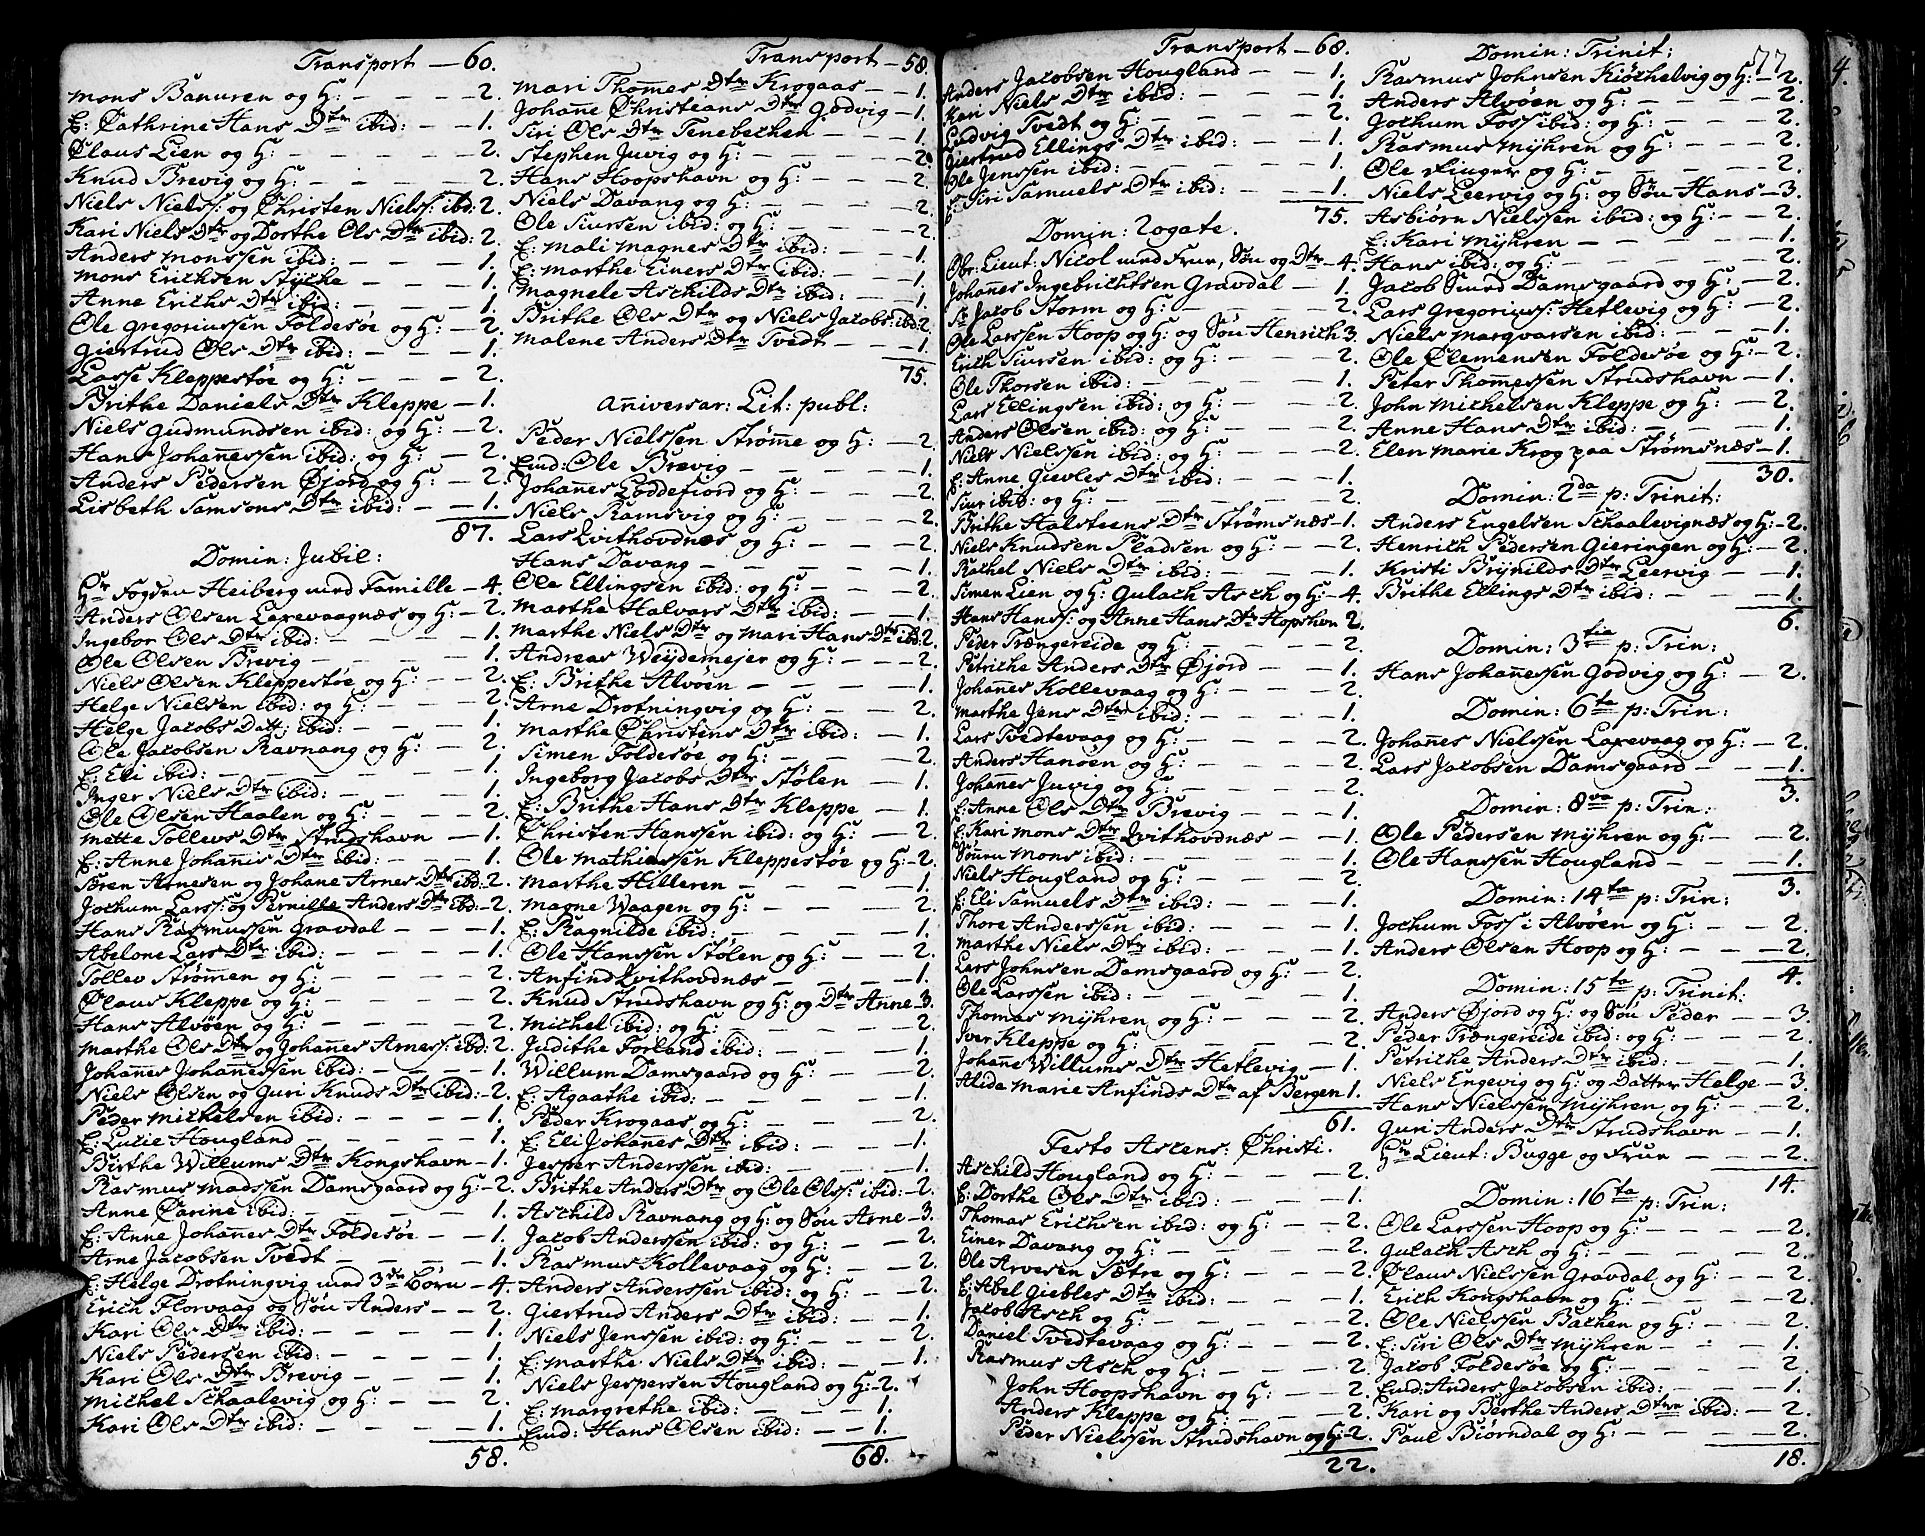 Transport — 60.
Mons Banuren og H: — — — 2.
E: Cathrine Hans Dtr ibid: — — 1.
Claus Lien og H: — — — — 2.
Knud Brevig og H: — — — — 2.
Niels Nielss: og Christen Nielss: ibd: 2.
Kari Niels Dtr og Dorthe Ols Dtr ibid: 2.
Anders Monssen ibid: — — — 1.
Mons Erichsen Styrhe — — — 1.
Anne Erichs Dtr ibid: — — — 1.
Ole Gregoriussen Foldesøe og H: — 2.
Giertrud Ols Dtr ibid: — — — 1.
Lasse Kleppestøe og H: — — — 2.
Brithe Daniels Dtr Kleppe — 1.
Niels Gudmundsen ibid: og H: — 2.
Hans Johannessen ibid: og H: — 2.
Anders Pedersen Øjord og H: — 2.
Lisbeth Samsons Dtr ibid: — — 1.
87.
Domin: Jubil:
Hr Fogden Heiberg med Famille — 4.
Anders Olsen Laxevaagnæs og H: — 2.
Ingebor Ols Dtr ibid: — — — 1.
Ole Olsen Brevig — — — — 1.
Niels Olsen Kleppestøe og H: — — 2.
Helge Nielsen ibid: og H: — — 2.
Helge Jacobs Datt: ibid: — — — 1.
Ole Jacobsen Ravnang og H: — — 2.
E: Eli ibid: — — — — — 1.
Inger Niels Dtr ibid: — — — 1.
Ole Olsen Haalen og H: — — — 2.
Mette Tollevs Dtr Strudshavn — 1.
E: Anne Johanis Dtr ibid: — — — 1.
Søren Arnesen og Johane Arnes Dtr ibd: 2.
Jochum Larss: og Pernille Anders Dtr ibd: — 2.
Hans Rasmussen Gravdal — — — 1.
Abelone Lars Dtr ibid: — — — 1.
Tollev Strømen og H: — — — 2.
Claus Kleppe og H: — — — — 2.
Hans Alvøen og H: — — — — 2.
Marthe Ols Dtr og Johannes Arness: ibd: 2.
Johannes Johannessen ibid: — — — 1.
Niels Olsen og Guri Knuds Dtr ibid: — 2.
Peder Michelsen ibid: — — — 1.
E: Lucie Hougland — — — — 1.
Birthe Willums Dtr Kongshavn — 1.
Rasmus Madssen Damsgaard og H: — 2.
Anne Carine ibid: — — — — 1.
E: Anne Johannes Dtr Foldesøe — — 1.
Arne Jacobsen Tvedt — — — — 1.
E: Helge Drotningvig med 3de Børn — 4.
Erich Florvaag og Søn Anders — — 2.
Kari Ols Dtr ibid: — — — — 1.
Niels Pedersen ibid: — — — — 1.
Kari Ols Dtr Brevig — — — 1.
Michel Schaalevig og H: — — — 2.
Kari Ols Dtr ibid: — — — — 1.
58.
Transport — 58.
Mari Thomes Dtr Krogaas — — 1.
Johanne Christians Dtr Godvig — 1.
Siri Ols Dtr Tenebechen — — 1.
Stephen Juvig og H: — — — 2.
Hans Hoopshavn og H: — — — 2.
Niels Davang og H: — — — — 2.
Ole Siursen ibid: og H: — — — 2.
E: Mali Magnes Dtr ibid: — — — 1.
E: Marthe Einers Dtr ibid: — — 1.
Magnele Aschilds Dtr ibid: — — 1.
Brithe Ols Dtr og Niels Jacobs: ibd: 2.
Malene Anders Dtr Tvedt — — — 1.
75.
Aniversar: Lit: publ:
Peder Nielssen Strøme og H: — 2.
Eud: Ole Brevig — — — — 1.
Johannes Loddefiord og H: — — — 2.
Niels Ramsvig og H: — — — — 2.
Lars Qvithovdnæs og H: — — — 2.
Hans Davang — — — — — 1.
Ole Ellingsen ibid: og H: — — — 2.
Marthe Halvars Dtr ibid: — — — 1.
Marthe Niels Dtr og Mari Hans Dtr ibd: 2.
Andreas Weydemejer og H: — — 2.
E: Brithe Alvøen — — — — 1.
Arne Drotningvig og H: — — — 2.
Marthe Christens Dtr ibid: — — 1.
Simen Foldesøe og H: — — — 2.
Ingeborg Jacobs Dtr Stølen — 1.
E: Brithe Hans Dtr Kleppe — — 1.
Christen Hanssen ibid: og H: — — 2.
Ole Mathiassen Kleppestøe og H: — 2.
Marthe Hilleren — — — — 1.
Magne Waagen og H: — — — 2.
E: Ragnilde ibid: — — — — 1.
Ole Hanssen Stølen og H: — — 2.
Anfind Qvithovdnæs — — — — 1.
Knud Strudshavn og H: og Dtr Anne — 3.
Michel ibid: og H: — — — — 2.
Judithe Forland ibid: — — — 1.
Willum Damsgaard og H: — — 2.
E: Agaathe ibid: — — — — 1.
Peder Krogaas og H: — — — 2.
E: Eli Johannes Dtr ibid: — — — 1.
Jesper Anderssen ibid: — — — 1.
Brithe Anders Dtr og Ole Olss: ibid: — 2.
Aschild Ravnang og H: og Søn Arne — 3.
Jacob Anderssen ibid: og H: — — 2.
Rasmus Kollevaag og H: — — — 2.
Anders Anderssen ibid: og H: — — 2.
Giertrud Anders Dtr ibid: — — 1.
Niels Jenssen ibid: og H: — — — 2.
E: Marthe Niels Dtr ibid: — — 1.
Niels Jespersen Hougland og H: — 2.
E: Margrethe ibid: — — — — 1.
Eud: Hans Olsen ibid: — — — 1.
68.
Transport — 68.
Anders Jacobsen Hougland — — 1.
Kari Niels Dtr ibid: — — — 1.
Ludvig Tvedt og H: — — — — 2.
Giertrud Ellings Dtr ibid: — — — 1.
Ole Jenssen ibid: — — — — 1.
E: Siri Samuels Dtr ibid: — — — 1.
75.
Domin: Rogate.
Obr: Lieut: Nicol med Frue, Søn og Dtr — 4.
Johannes Ingebrichtsen Gravdal — 1.
Sr Jacob Storm og H: — — — — 2.
Ole Larssen Hoop og H: og Søn Henrich 3.
Erich Siursen ibid: og H: — — — 2.
Ole Thorsen ibid: — — — — 1.
Lars Ellingsen ibid: og H: — — — 2.
Anders Olsen ibid: og H: — — — 2.
Niels Nielssen ibid: og H: — — — 2.
E: Anne Gievles Dtr ibid: — — — 1.
Siur ibid: og H: — — — — 2.
Brithe Halsteens Dtr Strømsnæs — 1.
Niels Knudsen Pladsen og H: — — 2.
Rachel Niels Dtr ibid: — — — 1.
Simen Lien og H: Gulach Asch og H: — 4.
Hans Hanss: og Anne Hans Dtr Hopshavn 2.
Peder Trængereide og H: — — — 2.
Petriche Anders Dtr Øjord — — 1.
Johannes Kollevaag og H: — — — 2.
Marthe Jens Dtr ibid: — — — 1.
Lars Tvedtevaag og H: — — — — 2.
Anders Hanøen og H: — — — — 2.
Johannes Juvig og H: — — — — 2.
E: Anne Ols Dtr Brevig — — — 1.
E: Kari Mons Dtr Qvithovdnæs — — 1.
Sønen Mons ibid: — — — — 1.
Niels Hougland og H: — — — — 2.
E: Eli Samuels Dtr ibid: — — — 1.
Thore Anderssen ibid: — — — 1.
Marthe Niels Dtr ibid: — — — 1.
Lars Johnsen Damsgaard og H: — 2.
Ole Larssen ibid: — — — — 1.
Thomas Myhren og H: — — — — 2.
Iver Kleppe og H: — — — — 2.
Johanne Willums Dtr Hetlevig — 1.
Alida Marie Anfinds Dtr af Bergen 1.
61.
Festo Ascens: Christi.
Aschild Hougland og H: — — — 2.
E: Dorthe Ols Dtr ibid: — — — 1.
Thomas Erichsen ibid: og H: — — 2.
Einer Davang og H: — — — — 2.
Ole Arvesen Sætre og H: — — — 2.
E: Abel Giebles Dtr ibid: — — — 1.
Jacob Asch og H: — — — — 2.
Daniel Tvedtevaag og H: — — — 2.
Rasmus Asch og H: — — — — 2.
John Hoopshavn og H: — — — 2.
Anders Kleppe og H: — — — — 2.
Peder Nielssen Strudshavn og H: — 2.
22.
Domin: Trinit:
77
Rasmus Johnsen Kiøchelvig og H: — 2.
Anders Alvøen og H: — — — — 2.
Jochum Foss ibid: og H: — — — 2.
Rasmus Myhren og H: — — — 2.
Ole Finger og H: — — — — 2.
Niels Leervig og H: og Søn Hans — 3.
Asbiørn Nielssen ibid: og H: — — 2.
E: Kari Myhren — — — — 1.
Hans ibid: og H: — — — — 2.
Jacob Siurd Damsgaard og H: — 2.
Lars Gregoriuss: Hetlevig og H: — 2.
Niels Marqvarsen ibid: — — — 1.
Ole Clemensen Foldesøe og H: — 2.
Peter Thomessen Strudshavn — 1.
John Michelsen Kleppe og H: — 2.
Anne Hans Dtr ibid: — — — 1.
Elen Marie Krog paa Strømsnæs — 1.
30.
Domin: 2da p: Trinit:
Anders Engelsen Schaalevignæs og H: — 2.
Henrich Pedersen Gieringen og H: — 2.
Kristi Brynilds Dtr Leervig — — 1.
Brithe Ellings Dtr ibid: — — — 1.
6.
Domin: 3tia p: Trin:
Hans Johannessen Godvig og H: — 2.
Domin: 6ta p: Trin:
Johannes Nielssen Laxevaag og H: — 2.
Lars Jacobsen Damsgaard — — — 1.
3.
Domin: 8va p: Trin:
Ole Pedersen Myhren og H: — — 2.
Ole Hanssen Hougland — — — 1.
3.
Domin: 14ta p: Trin:
Jochum Foss i Alvøen og H: — — 2.
Anders Olsen Hoop og H: — — — 2.
4.
Domin: 15ta p: Trinit:
Anders Øjord og H: og Søn Peder — — 3.
Peder Trængereide ibid: og H: — — 2.
Petriche Anders Dtr ibid: — — — 1.
Niels Engevig og H: og Datter Helge — 3.
Hans Nielssen Myhren og H: — — 2.
Guri Anders Dtr Strudshavn — — 1.
Hr Lieut: Bugge og Frue — — — 2.
14.
Domin: 16ta p: Trin:
Ole Larssen Hoop og H: — — — 2.
Gulach Asch og H: — — — — 2.
Claus Nielssen Gravdal og H: — — 2.
Erich Kongshavn og H: — — — 2.
Ole Nielssen Bachen og H: — — 2.
E: Siri Ols Dtr Myhren — — — 1.
Jacob Foldesøe og H: — — — — 2.
Eud: Anders Jacobsen ibid: — — — 1.
Kari og Berthe Anders Dtre ibid: — 2.
Paul Biørndal og H: — — — — 2.
18.